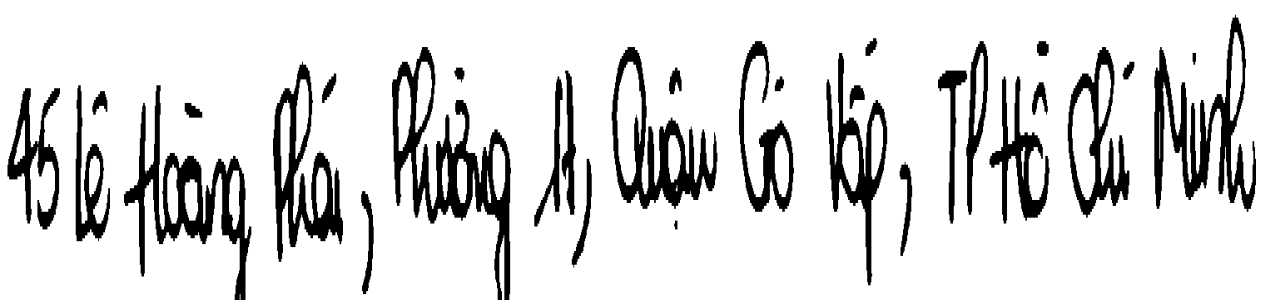 45 Lê Hoàng Phái, Phường 17, Quận Gò Vấp, TP Hồ Chí Minh